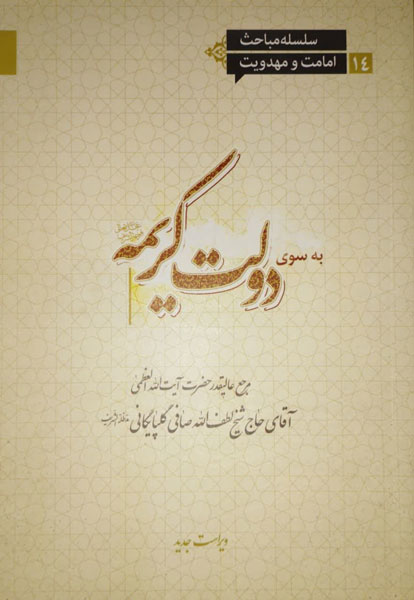 سلسله مباحث
امامت و مهدویت
۱٤
به سوی
دولت کریمه
مرجع عالیقدر حضرت آیت الله العظمی
آقای حاج شیخ لطف الله صافی گلپایگانی
ویراست جدید